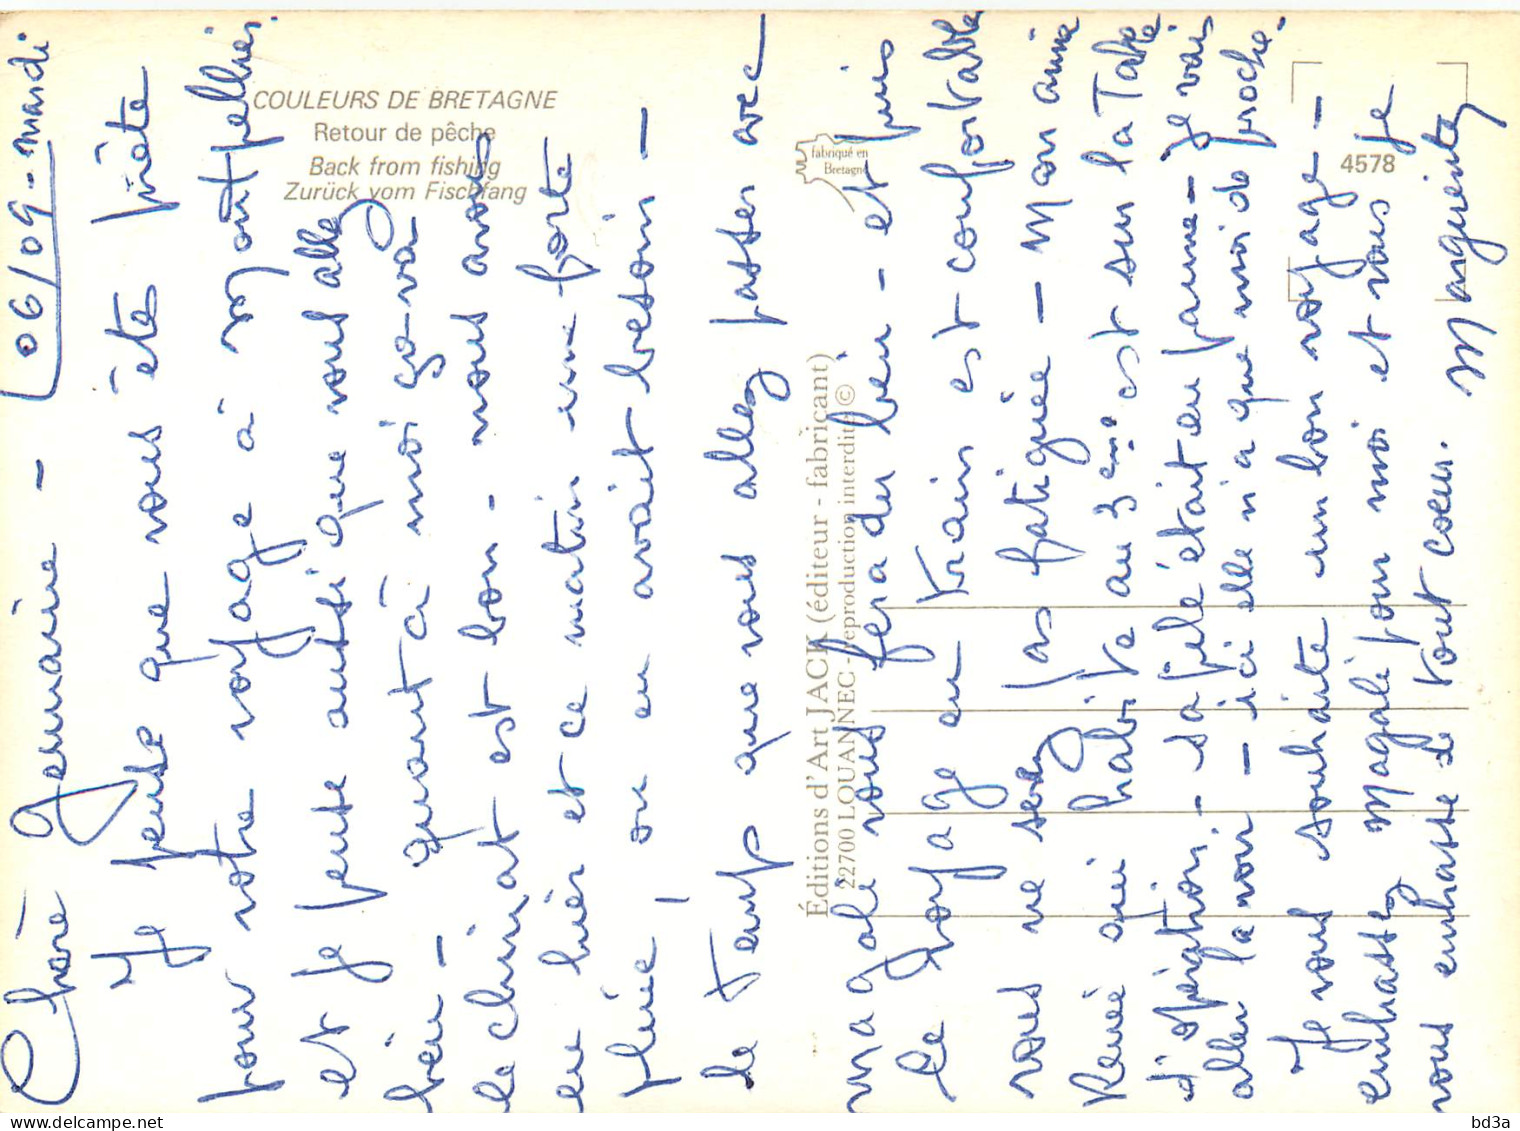 COULEURS DE BRETAGNE
Retour de pêche
Back from fishing
Zurück vom Fischfang
fabriqué en
Bretagne
4578
Éditions d'Art JACK (éditeur - fabricant)
22700 LOUANNEC - reproduction interdite ©
06/09 - mardi
Chère Germaine -
Je pense que vous été prête
pour votre voyage à Montpellier.
et je pense aussi que vous allez
bien - quant à moi ça-va
le climat est bon - nous avons
eu hier et ce matin une forte
pluie, on en avait besoin -
le temps que vous allez passer avec
magali vous fera du bien - et puis
le voyage en train est confortable
vous ne serez pas fatiguée - Mon amie
Renée qui habite au 3ème est sur la Table
d'opération - sa fille était en panne - Je vais
aller la voir - ici elle n'a que moi de proche.
Je vous souhaite un bon voyage -
embrassez Magali pour moi et vous je
vous embrasse de tout coeur.
Marguerite
delcampe.net
bd3a